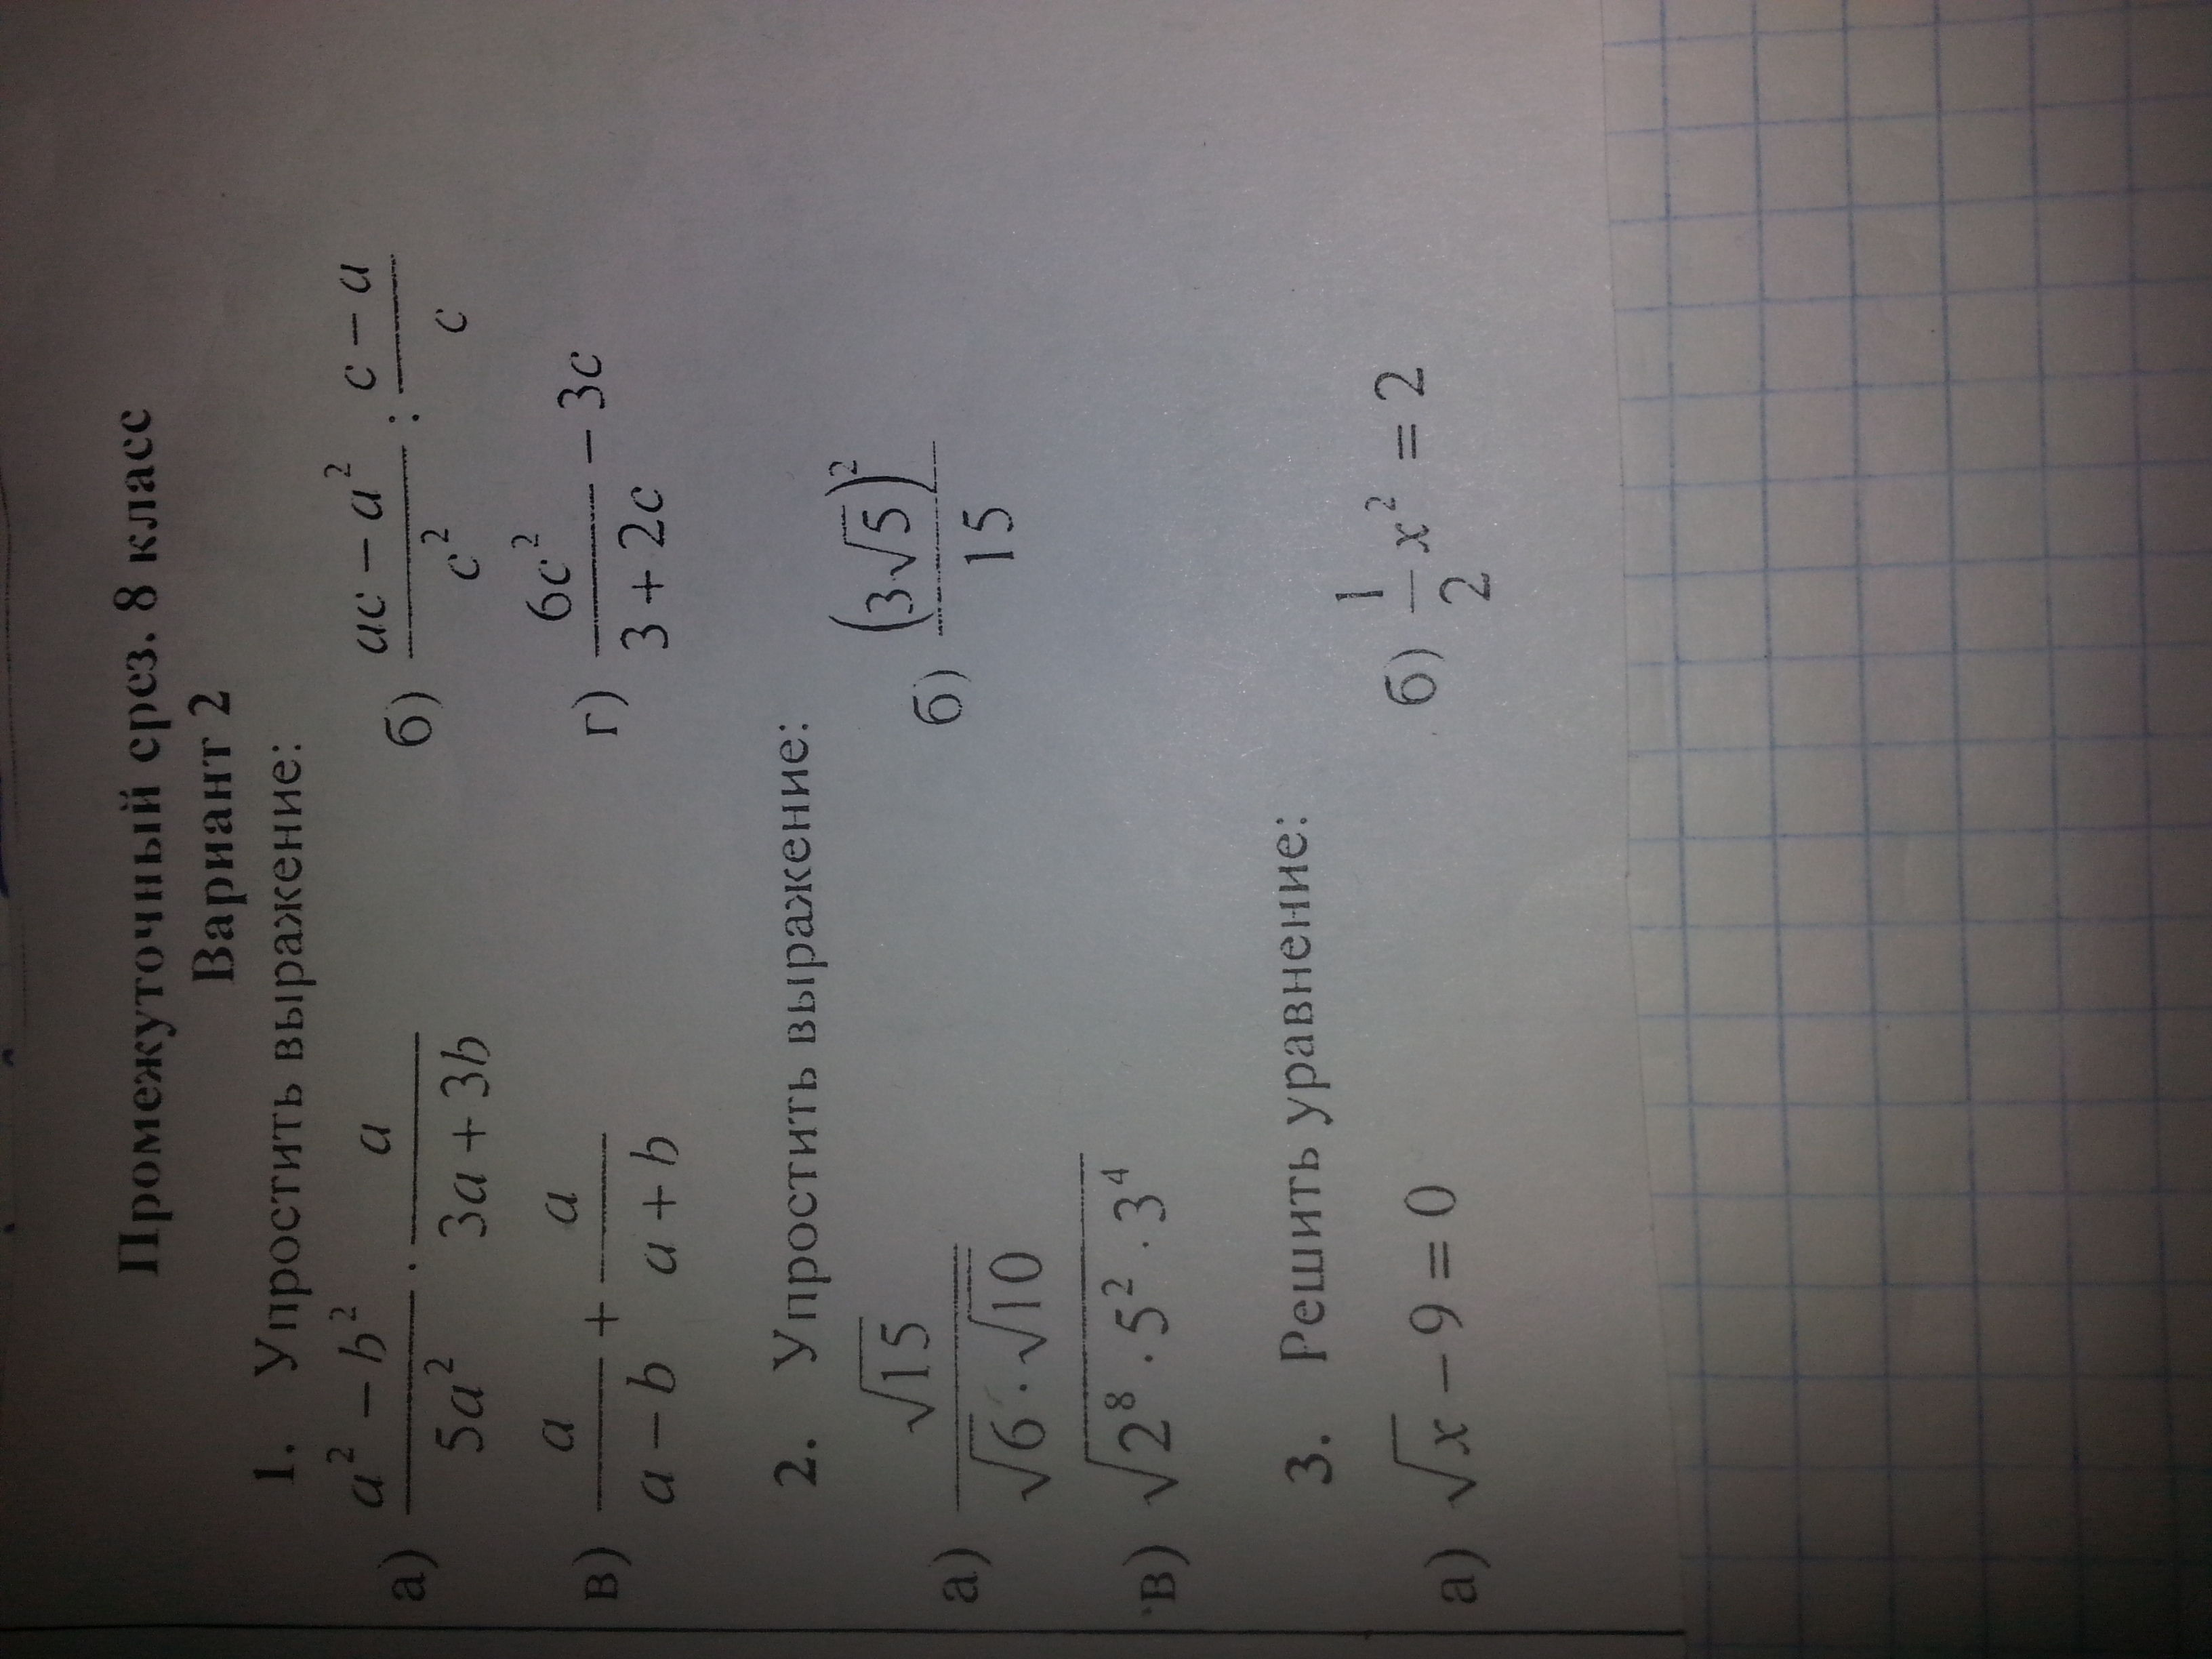 Промежуточный срез. 8 класс
Вариант 2
1. Упростить выражение:
а) \frac{a^2 - b^2}{5a^2} \cdot \frac{a}{3a + 3b} б) \frac{ac - a^2}{c^2} : \frac{c - a}{c}
в) \frac{a}{a - b} + \frac{a}{a + b} г) \frac{6c^2}{3 + 2c} - 3c
2. Упростить выражение:
а) \frac{\sqrt{15}}{\sqrt{6} \cdot \sqrt{10}} б) \frac{(3\sqrt{5})^2}{15}
в) \sqrt{2^8 \cdot 5^2 \cdot 3^4}
3. Решить уравнение:
а) \sqrt{x} - 9 = 0 б) \frac{1}{2}x^2 = 2